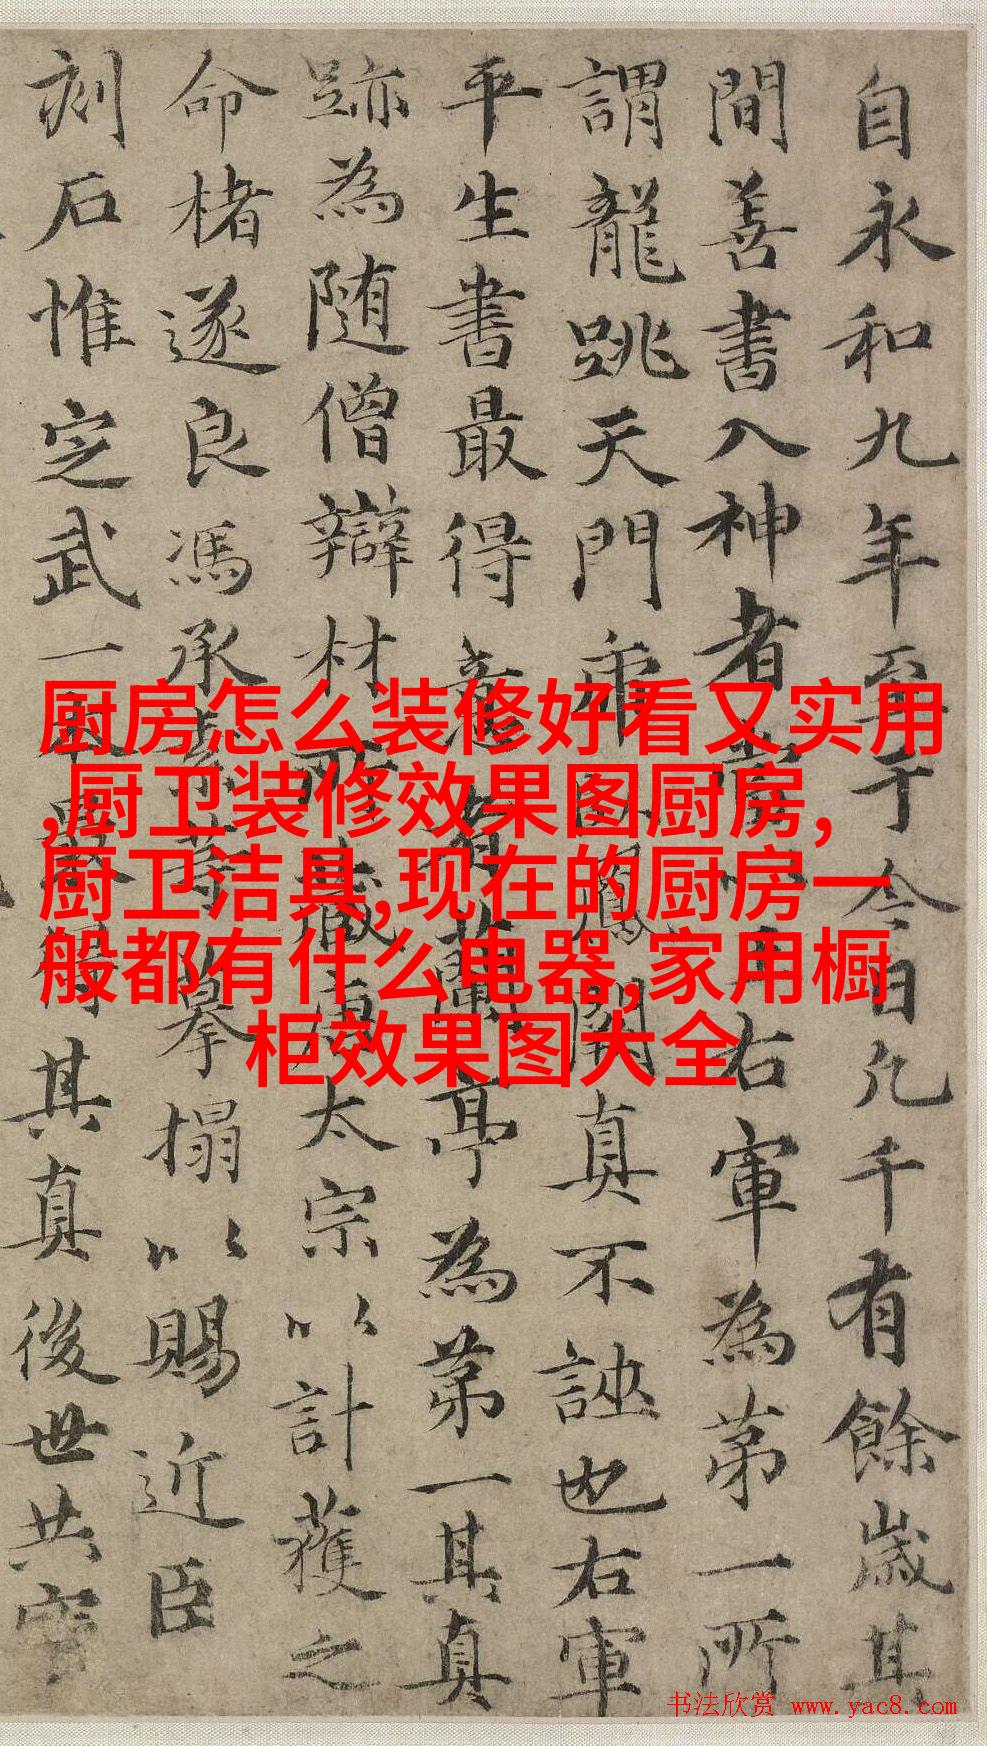 自永和九年至于今日凡千有餘歲其
間善書入神者當王右軍為第一所
謂龍跳天門虎臥鳳閣真不誣也右軍
平生書最得意蘭亭為第一其真
跡為随僧辯材所藏唐太宗以計獲之
命楮遂良馮承素等摹搨以賜近臣
刻石惟定武一本得其真後世共寳
厨房怎么装修好看又实用
,厨卫装修效果图厨房,
厨卫洁具,现在的厨房一
般都有什么电器,家用橱
柜效果图大全
书法欣赏 www.yac8.com